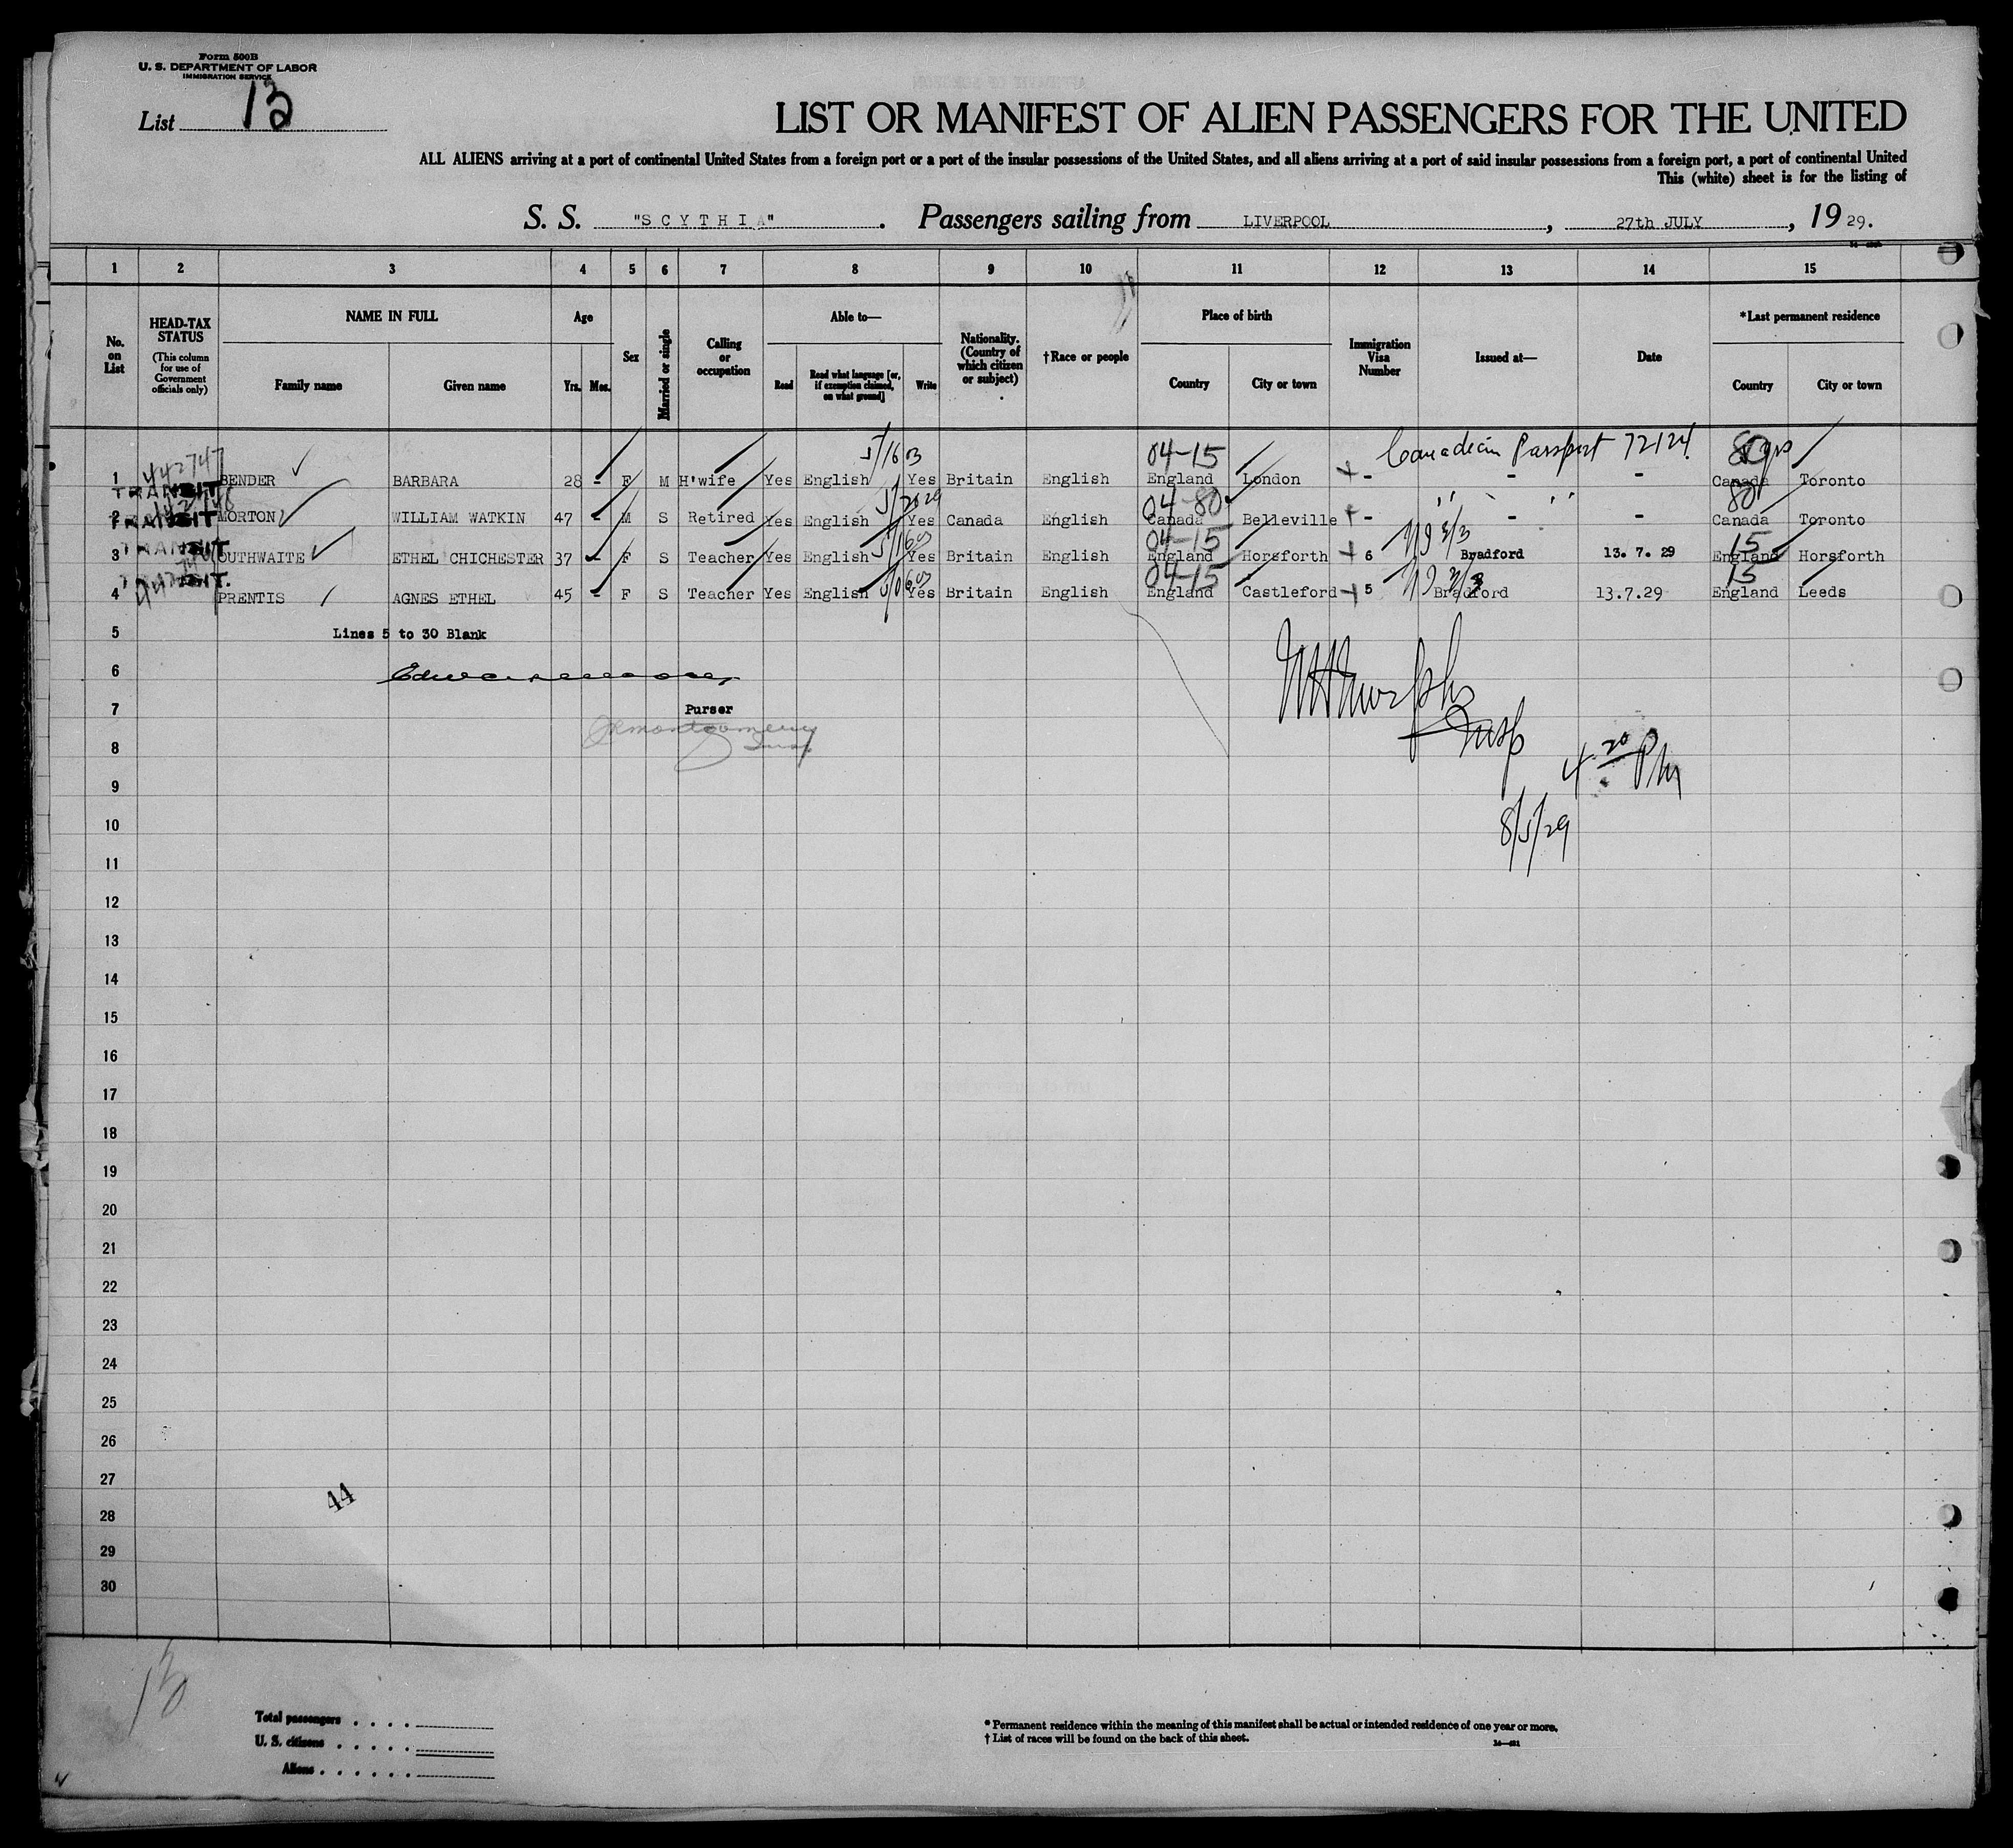 Form 500B
U. S. DEPARTMENT OF LABOR
IMMIGRATION SERVICE
List 13
LIST OR MANIFEST OF ALIEN PASSENGERS FOR THE UNITED
ALL ALIENS arriving at a port of continental United States from a foreign port or a port of the insular possessions of the United States, and all aliens arriving at a port of said insular possessions from a foreign port, a port of continental United
This (white) sheet is for the listing of
S. S. "SCYTHIA". Passengers sailing from LIVERPOOL, 27th JULY, 19 29.
1 2 3 4 5 6 7 8 9 10 11 12 13 14 15
No. on List
HEAD-TAX STATUS (This column for use of Government officials only)
NAME IN FULL Family name Given name
Age Yrs. Mos.
Sex
Married or single
Calling or occupation
Able to— Read Read what language [or, if exemption claimed, on what ground] Write
Nationality. (Country of which citizen or subject)
†Race or people
Place of birth Country City or town
Immigration Visa Number
Issued at—
Date
*Last permanent residence Country City or town
442747 5/1603 04-15 Canadian Passport 72124 80 yrs
1 TRANSIT BENDER BARBARA 28 - F M H'wife Yes English Yes Britain English England London - - - Canada Toronto
04-80 80
2 TRANSIT MORTON WILLIAM WATKIN 47 - M S Retired Yes English Yes Canada English Canada Belleville - " " - - Canada Toronto
04-15 15
3 TRANSIT OUTHWAITE ETHEL CHICHESTER 37 - F S Teacher Yes English Yes Britain English England Horsforth 6 Bradford 13. 7. 29 England Horsforth
04-15 15
4 TRANSIT. PRENTIS AGNES ETHEL 45 - F S Teacher Yes English Yes Britain English England Castleford 5 Bradford 13.7.29 England Leeds
5 Lines 5 to 30 Blank
6
7 Purser
Montgomery
Insp
Murphy
Insp
4 20 PM
8/5/29
8
9
10
11
12
13
14
15
16
17
18
19
20
21
22
23
24
25
26
27
44
28
29
30
13
Total passengers . . . .
U. S. citizens . . . . .
Aliens . . . . . .
* Permanent residence within the meaning of this manifest shall be actual or intended residence of one year or more.
† List of races will be found on the back of this sheet.